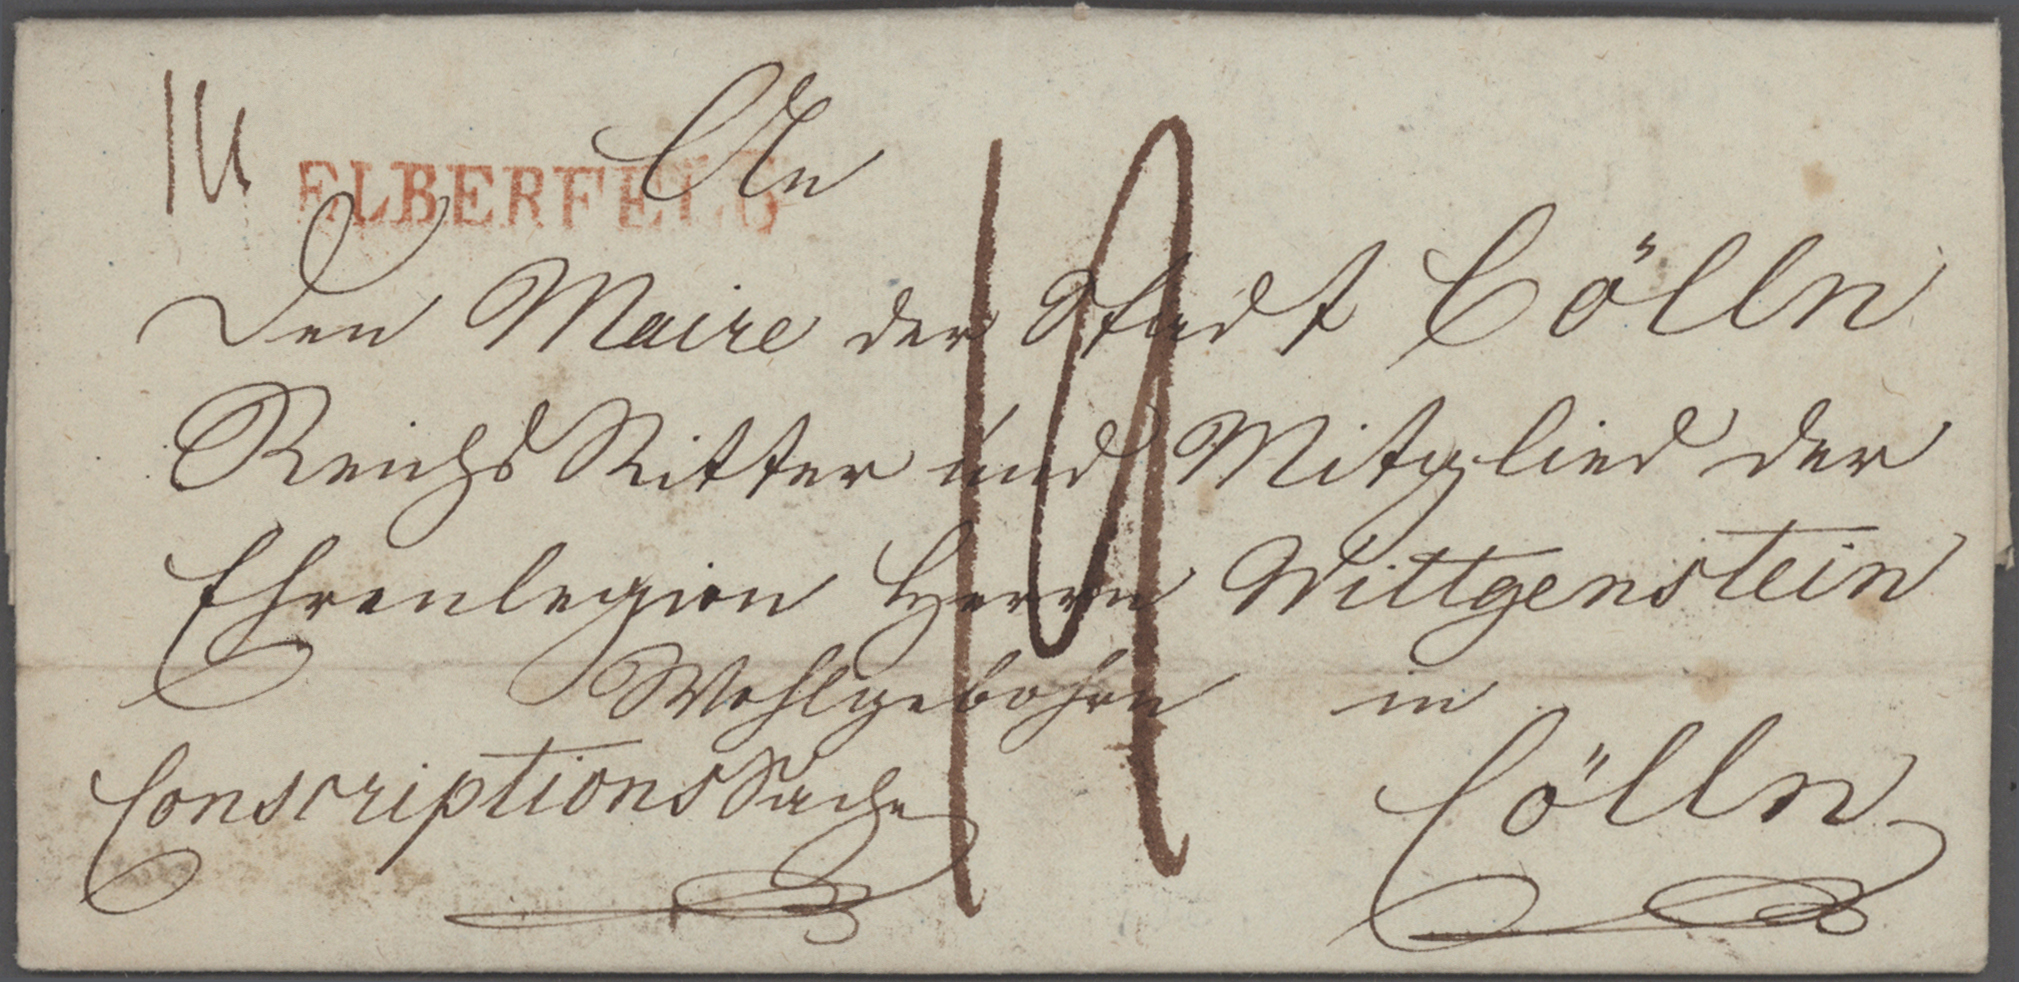 ELBERFELD
An
Den Maire der Stadt Cölln
Reichs Ritter und Mitglied der
Ehrenlegion Herrn Wittgenstein
Wohlgebohrn in
Conscriptions Sache Cölln